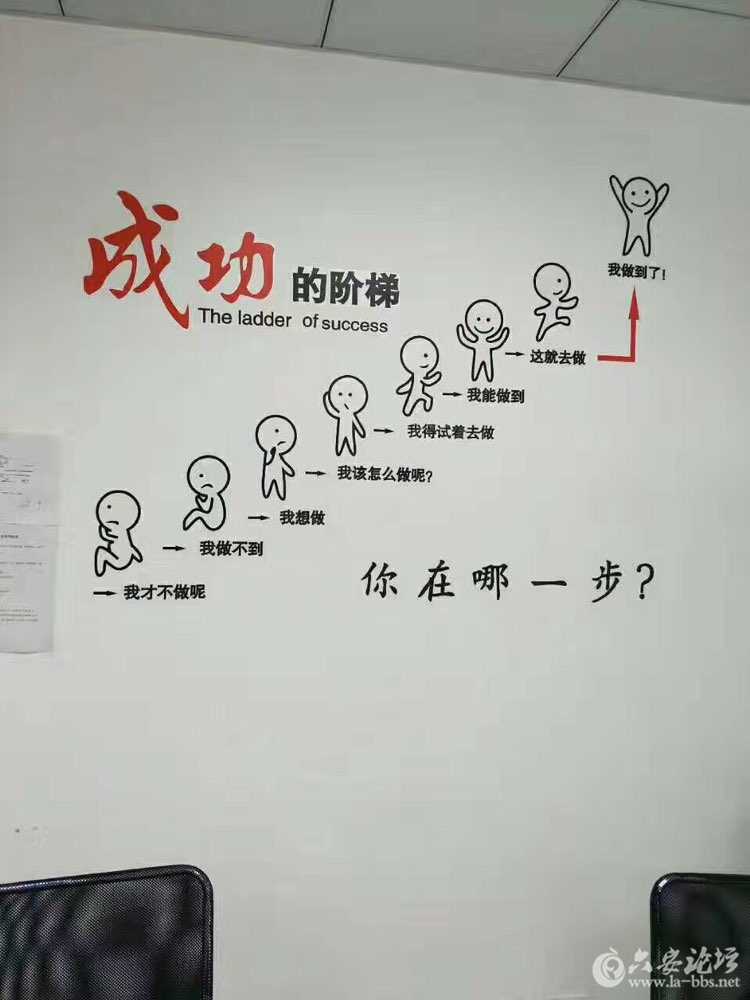 成功的阶梯
The ladder of success
我做到了!
这就去做
我能做到
我得试着去做
我该怎么做呢?
我想做
我做不到
我才不做呢
你在哪一步?
六安论坛
www.la-bbs.net